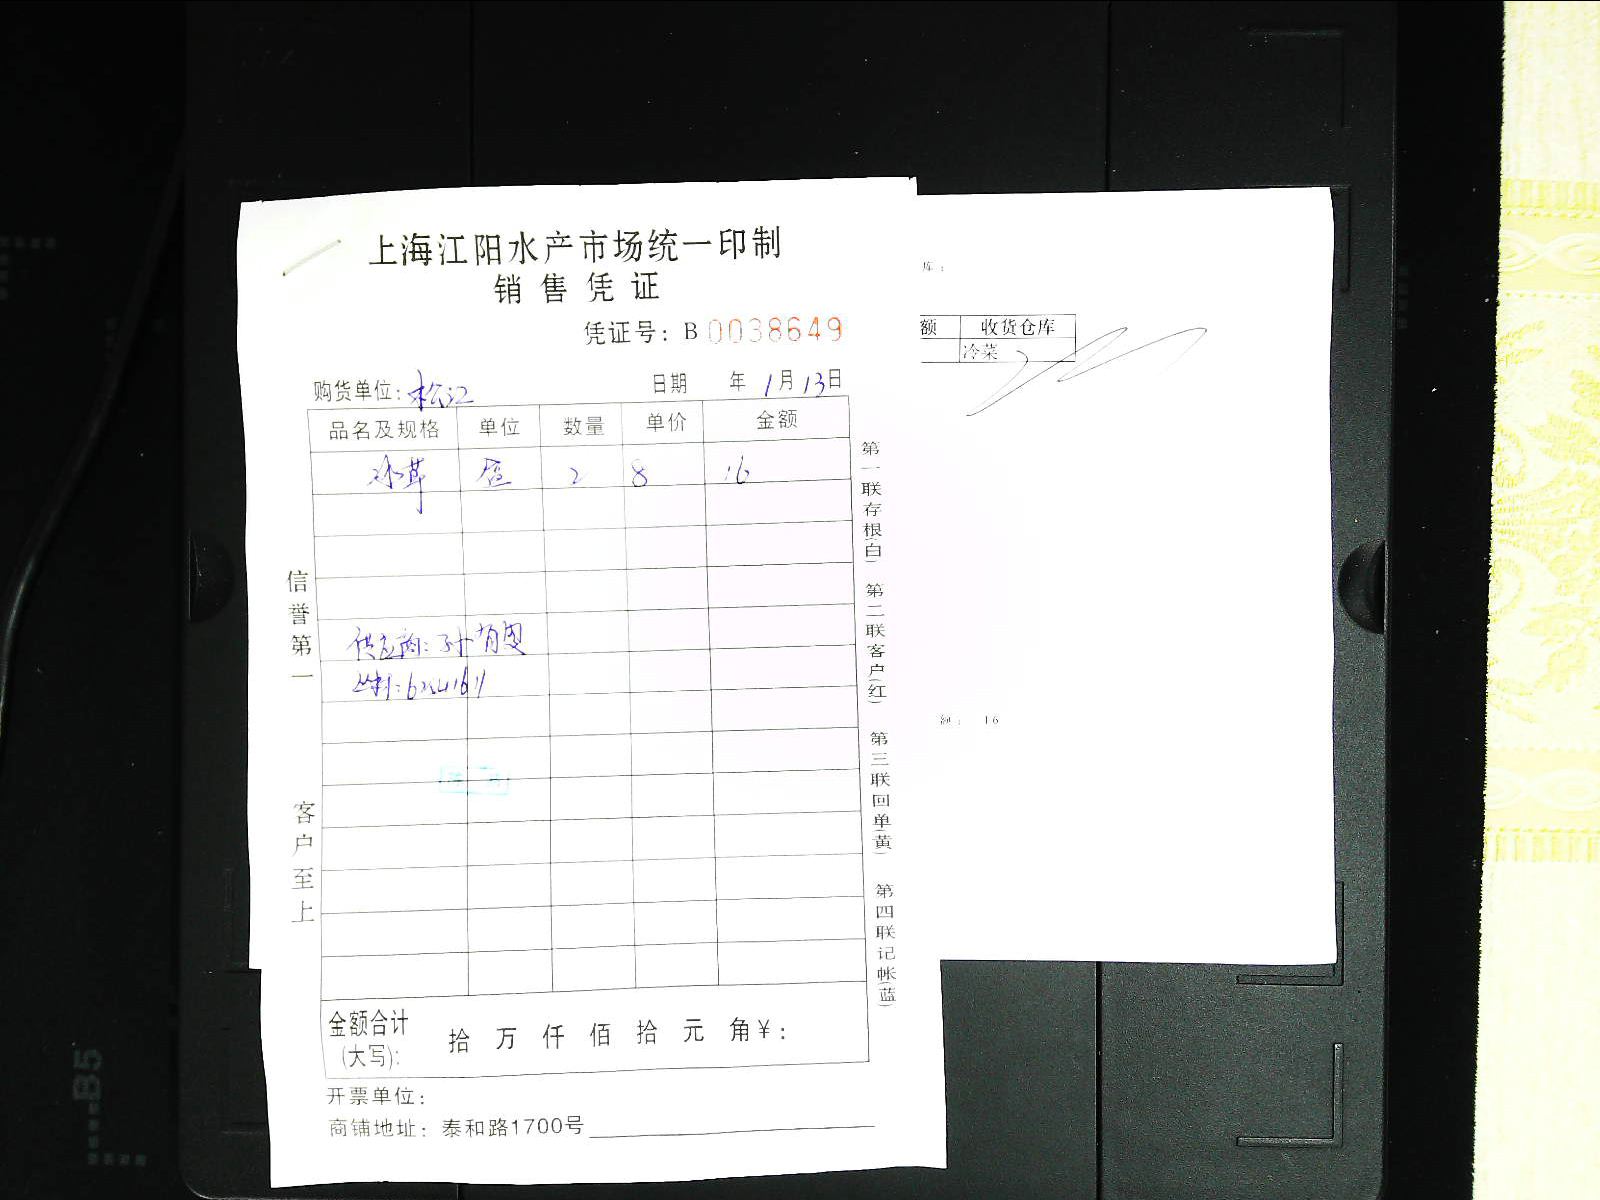 上海江阳水产市场统一印制
销售凭证
凭证号：B 0038649
购货单位：松江 日期 年 1月13日
品名及规格 单位 数量 单价 金额
冰草 盒 2 8 16
供应商：孙
金额合计(大写)： 拾 万 仟 佰 拾 元 角￥：
开票单位：
商铺地址：泰和路1700号
信誉第一 客户至上
第一联存根(白) 第二联客户(红) 第三联回单(黄) 第四联记帐(蓝)
库：
额 收货仓库
冷菜
16
B5